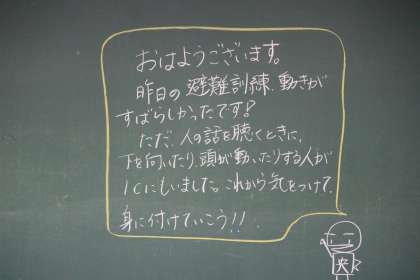 おはようございます。
昨日の避難訓練、動きが
すばらしかったです!
ただ、人の話を聴くときに、
下を向いたり、頭が動いたりする人が
1Cにもいました。これから気をつけて、
身に付けていこう!!
央